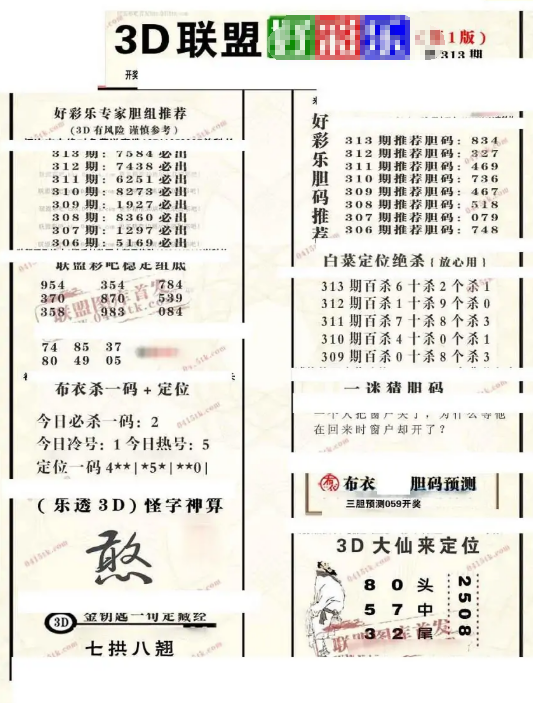 3D联盟
1版)
313期
开奖
好彩乐专家胆组推荐
(3D有风险 谨慎参考)
313期: 7584必出
312期: 7438必出
311期: 6251必出
310期: 8273必出
309期: 1927必出
308期: 8360必出
307期: 1297必出
306期: 5169必出
联盟彩吧稳定组底
954 354 784
370 870 539
358 983 084
74 85 37
80 49 05
布衣杀一码+定位
今日必杀一码: 2
今日冷号: 1 今日热号: 5
定位一码 4**|*5*|**0|
(乐透3D)怪字神算
憨
3D
金钥匙一句定藏经
七拱八翘
好彩乐胆码推荐
313期推荐胆码: 834
312期推荐胆码: 327
311期推荐胆码: 469
310期推荐胆码: 736
309期推荐胆码: 467
308期推荐胆码: 518
307期推荐胆码: 079
306期推荐胆码: 748
白菜定位绝杀{放心用}
313期百杀6十杀2个杀1
312期百杀1十杀9个杀0
311期百杀7十杀8个杀3
310期百杀4十杀0个杀1
309期百杀0十杀8个杀3
一迷猜胆码
一个人把窗户关了, 为什么等他
在回来时窗户却开了?
布衣 胆码预测
三胆预测059开奖
3D大仙来定位
8 0 头
5 7 中
3 2 尾
2508
联盟图库首发
0415tk.com